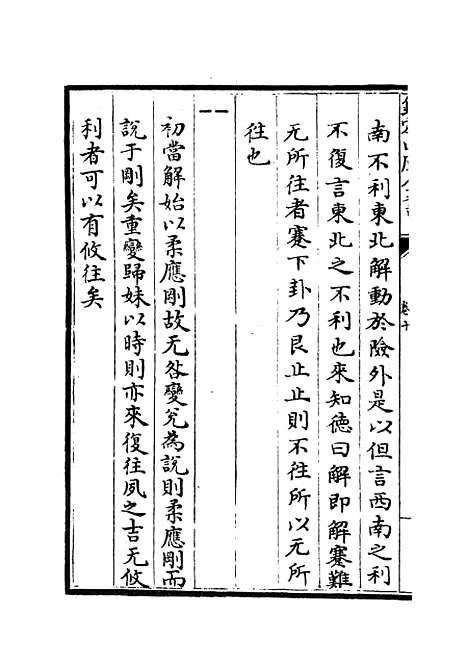 南不利東北解動於險外是以但言西南之利
不復言東北之不利也來知德曰解即解蹇難
无所往者蹇下卦乃艮止止則不往所以无所
往也
初當解始以柔應剛故无咎變兌為說則柔應剛而
說于剛矣重變歸妹以時則亦來復往夙之吉无攸
利者可以有攸往矣